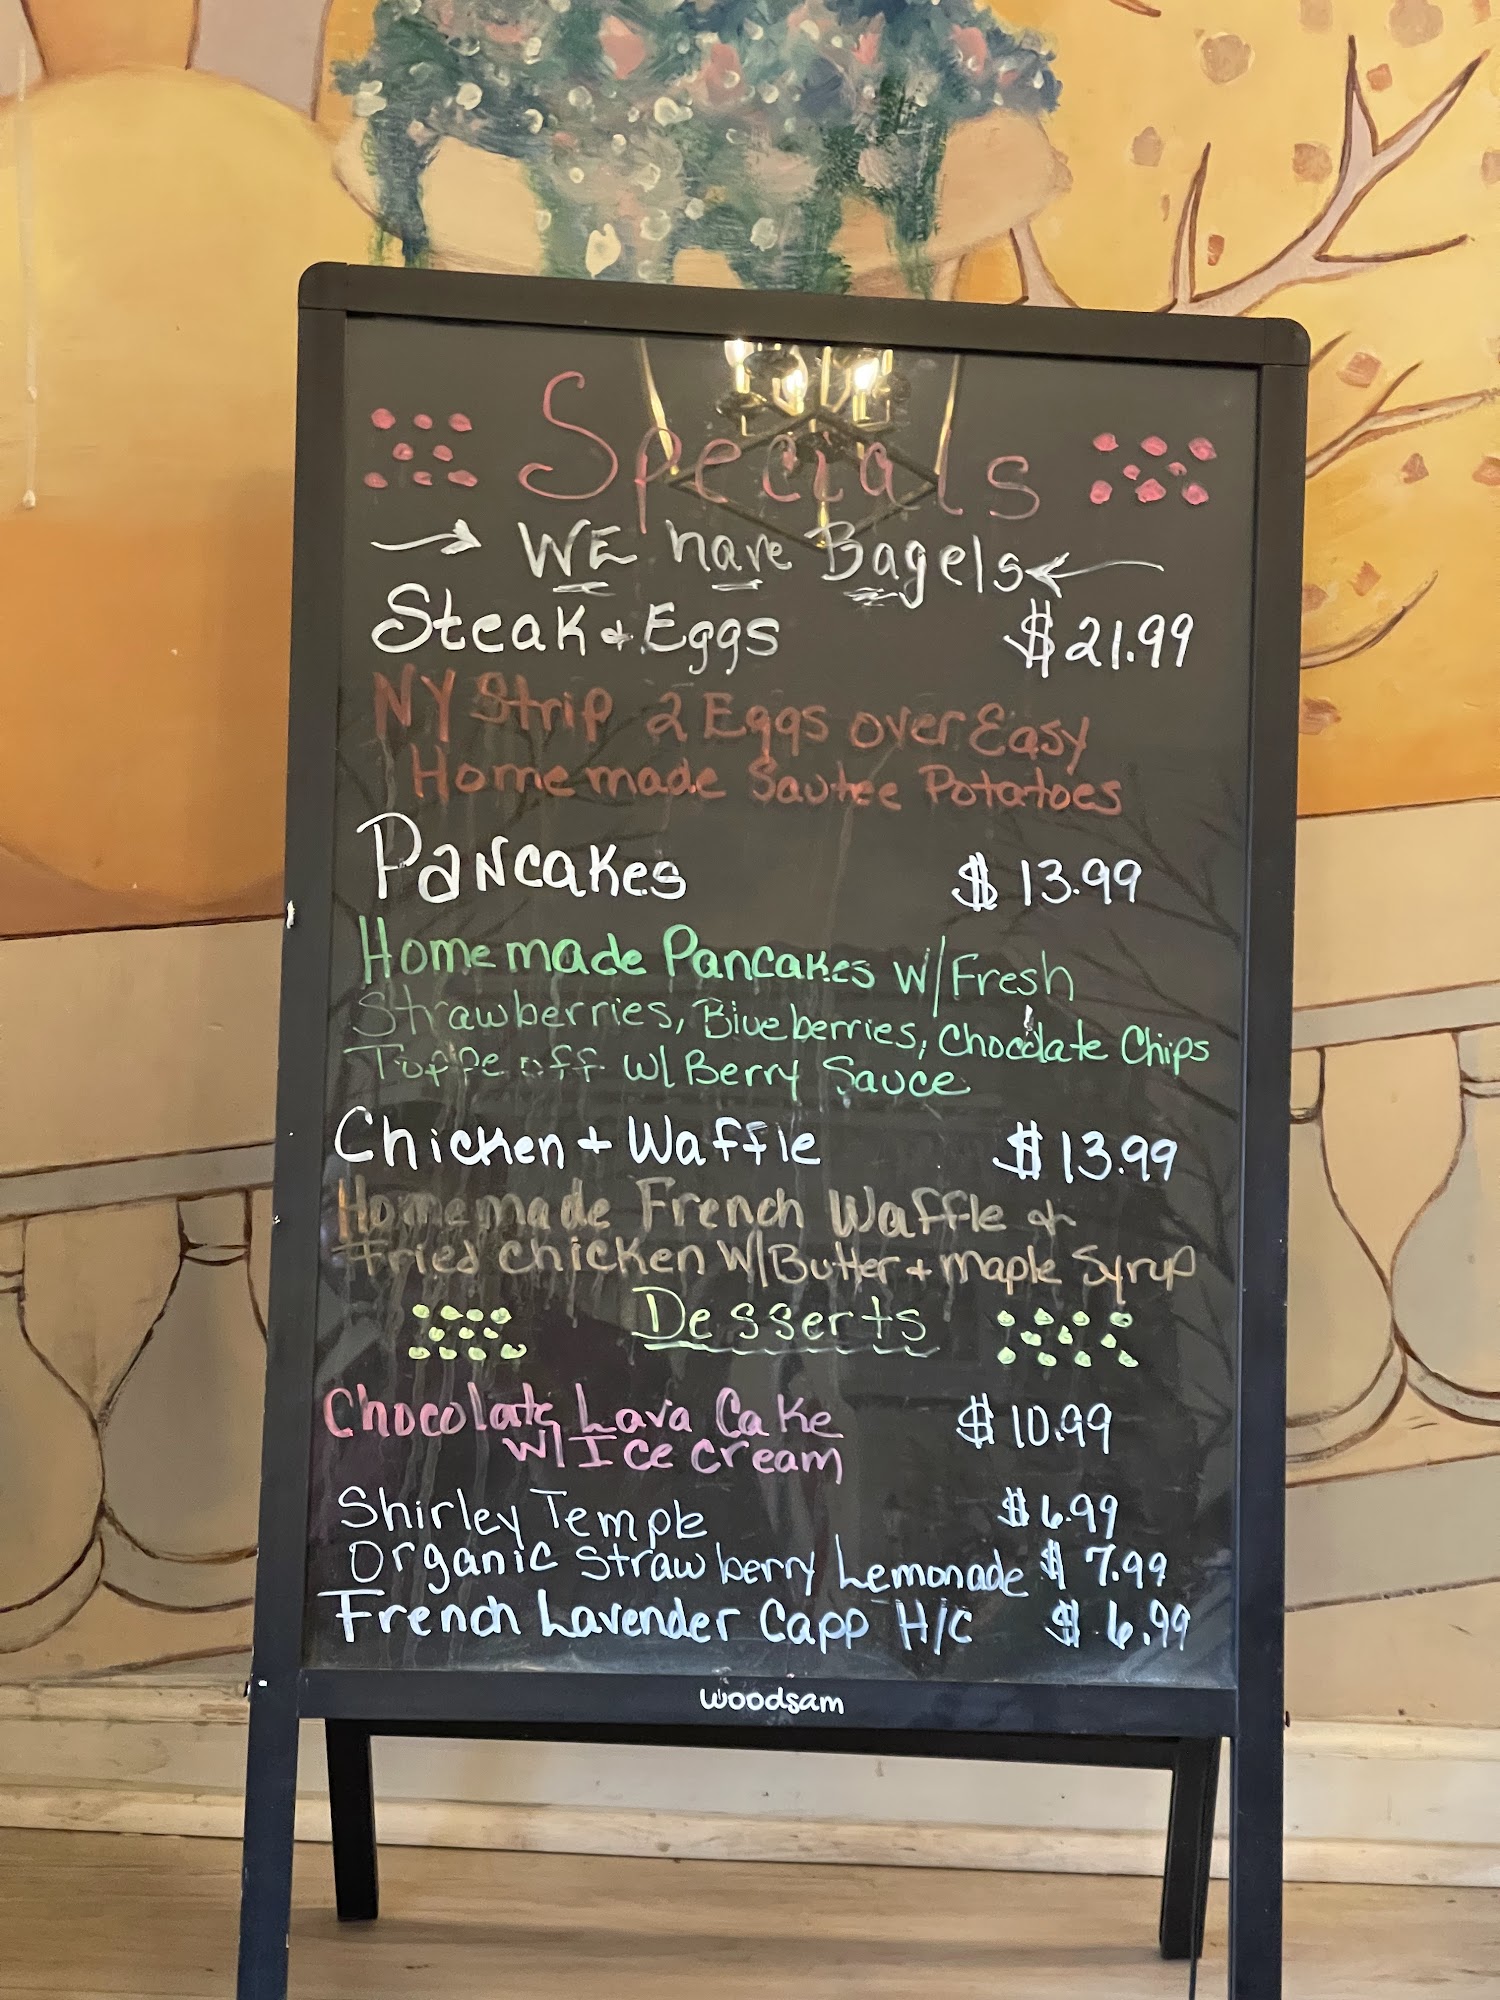 Specials
WE have Bagels
Steak & Eggs $21.99
NY Strip 2 Eggs over Easy
Homemade Sautee Potatoes
Pancakes $13.99
Homemade Pancakes W/Fresh
Strawberries, Blueberries, Chocolate Chips
off W/Berry Sauce
Chicken & Waffle $13.99
Homemade French Waffle &
Fried Chicken W/Butter & Maple Syrup
Desserts
Chocolate Lava Cake $10.99
W/Ice Cream
Shirley Temple $6.99
Organic Strawberry Lemonade $7.99
French Lavender Capp H/C $6.99
woodsam